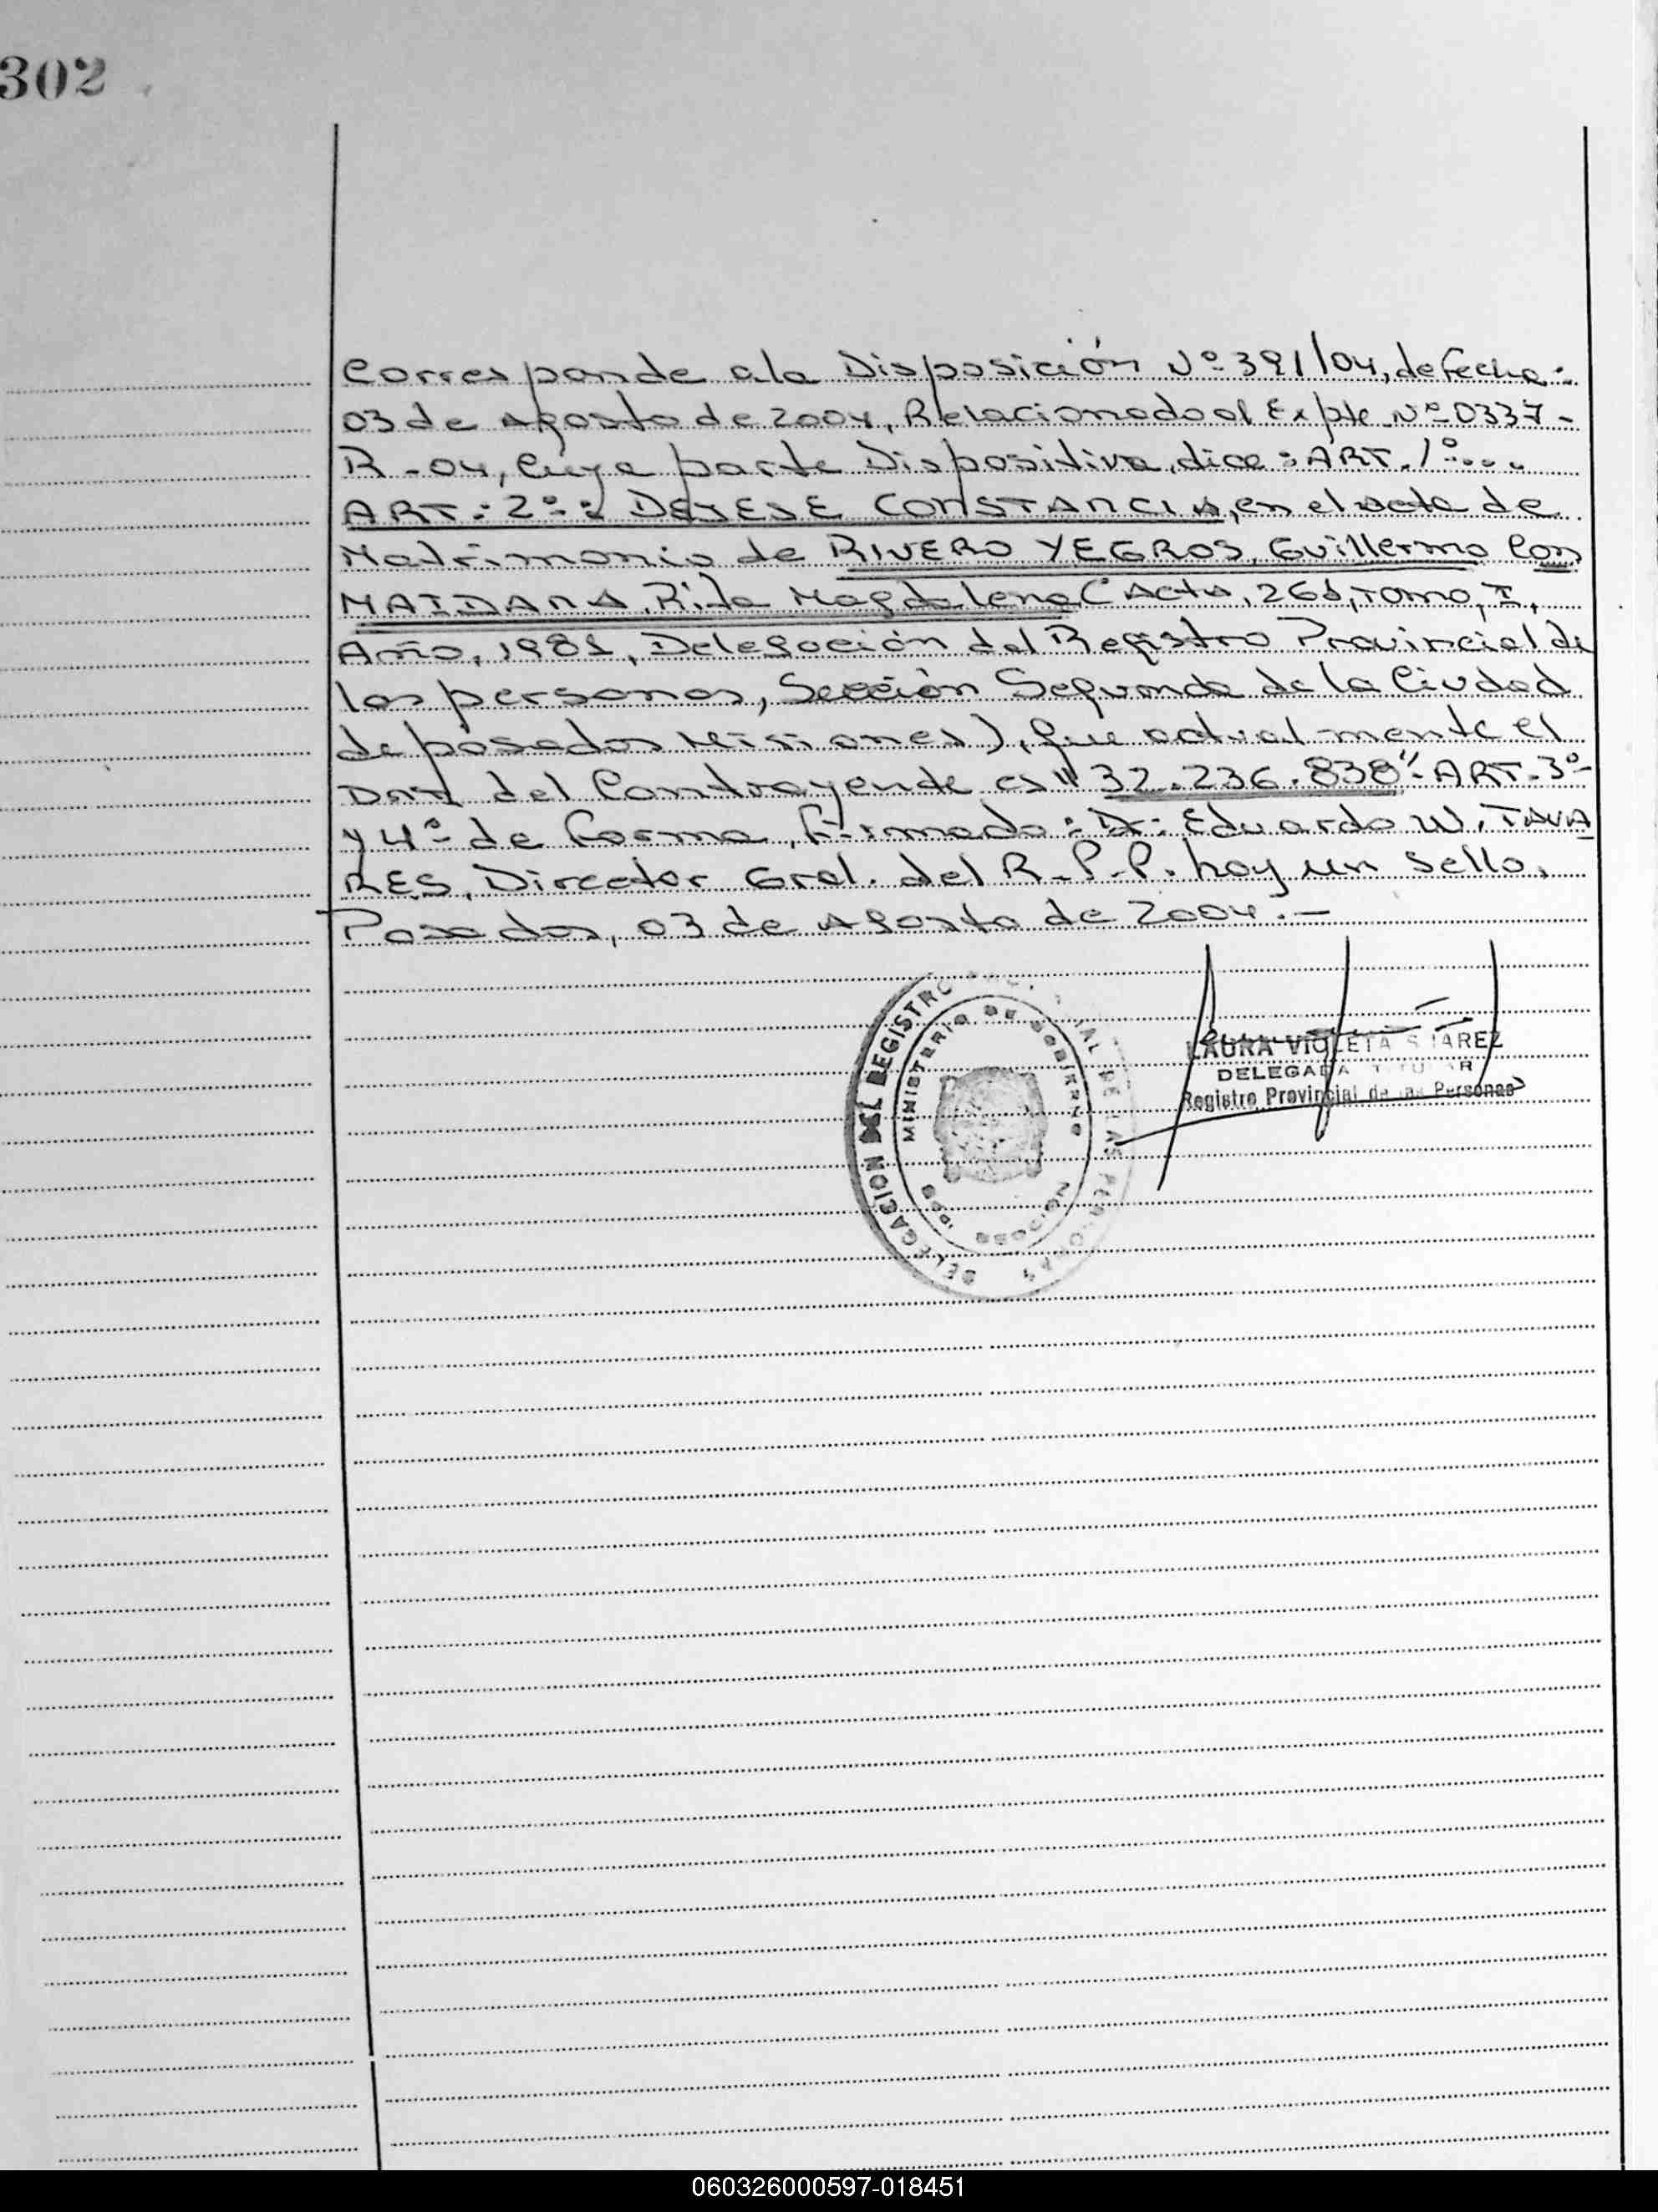 302
Corresponde a la Disposición Nº 391/04, de fecha:
03 de Agosto de 2004, Relacionado al Expte Nº 0337-
R-04, Cuya parte Dispositiva, dice: ART. 1º...
ART: 2º: DEJESE CONSTANCIA, en el acta de
Matrimonio de RIVERO YEGROS, Guillermo Con
MAIDANA, Rita Magdalena (Acta, 266, Tomo, I,
Año, 1981, Delegación del Registro Provincial de
las personas, Sección Segunda de la Ciudad
de posadas Misiones), que actual mente el
DNI del Contrayende es "32.236.838"- ART-3º-
y 4º de forma, Firmado: Dr: Eduardo W. TAVA
RES, Director Gral. del R.P.P. hay un Sello.
Posadas, 03 de Agosto de 2004.-
DELEGACION DEL REGISTRO PROVINCIAL DE LAS PERSONAS
MINISTERIO DE GOBIERNO
LAURA VIOLETA SUAREZ
DELEGADA TITULAR
Registro Provincial de las Personas
060326000597-018451